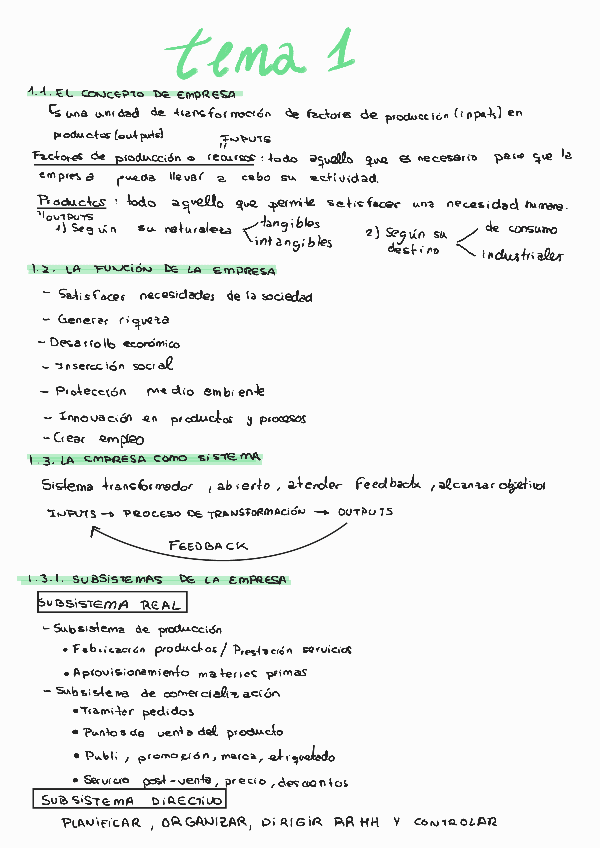 tema 1
1.1. EL CONCEPTO DE EMPRESA
Es una unidad de transformación de factores de producción (inputs) en
productos (outputs)
INPUTS
Factores de producción o recursos: todo aquello que es necesario para que la
empresa pueda llevar a cabo su actividad.
Productos: todo aquello que permite satisfacer una necesidad humana.
OUTPUTS
1) Según su naturaleza tangibles
intangibles
2) Según su destino de consumo
industriales
1.2. LA FUNCIÓN DE LA EMPRESA
- Satisfacer necesidades de la sociedad
- Generar riqueza
- Desarrollo económico
- Inserción social
- Protección medio ambiente
- Innovación en productos y procesos
- Crear empleo
1.3. LA EMPRESA COMO SISTEMA
Sistema transformador, abierto, atender feedback, alcanzar objetivos
INPUTS → PROCESO DE TRANSFORMACIÓN → OUTPUTS
FEEDBACK
1.3.1. SUBSISTEMAS DE LA EMPRESA
SUBSISTEMA REAL
- Subsistema de producción
• Fabricación productos / Prestación servicios
• Aprovisionamiento materies primas
- Subsistema de comercialización
• Tramiter pedidos
• Puntos de venta del producto
• Publi, promoción, marca, etiquetado
• Servicio post-venta, precio, descuentos
SUBSISTEMA DIRECTIVO
PLANIFICAR, ORGANIZAR, DIRIGIR RRHH Y CONTROLAR